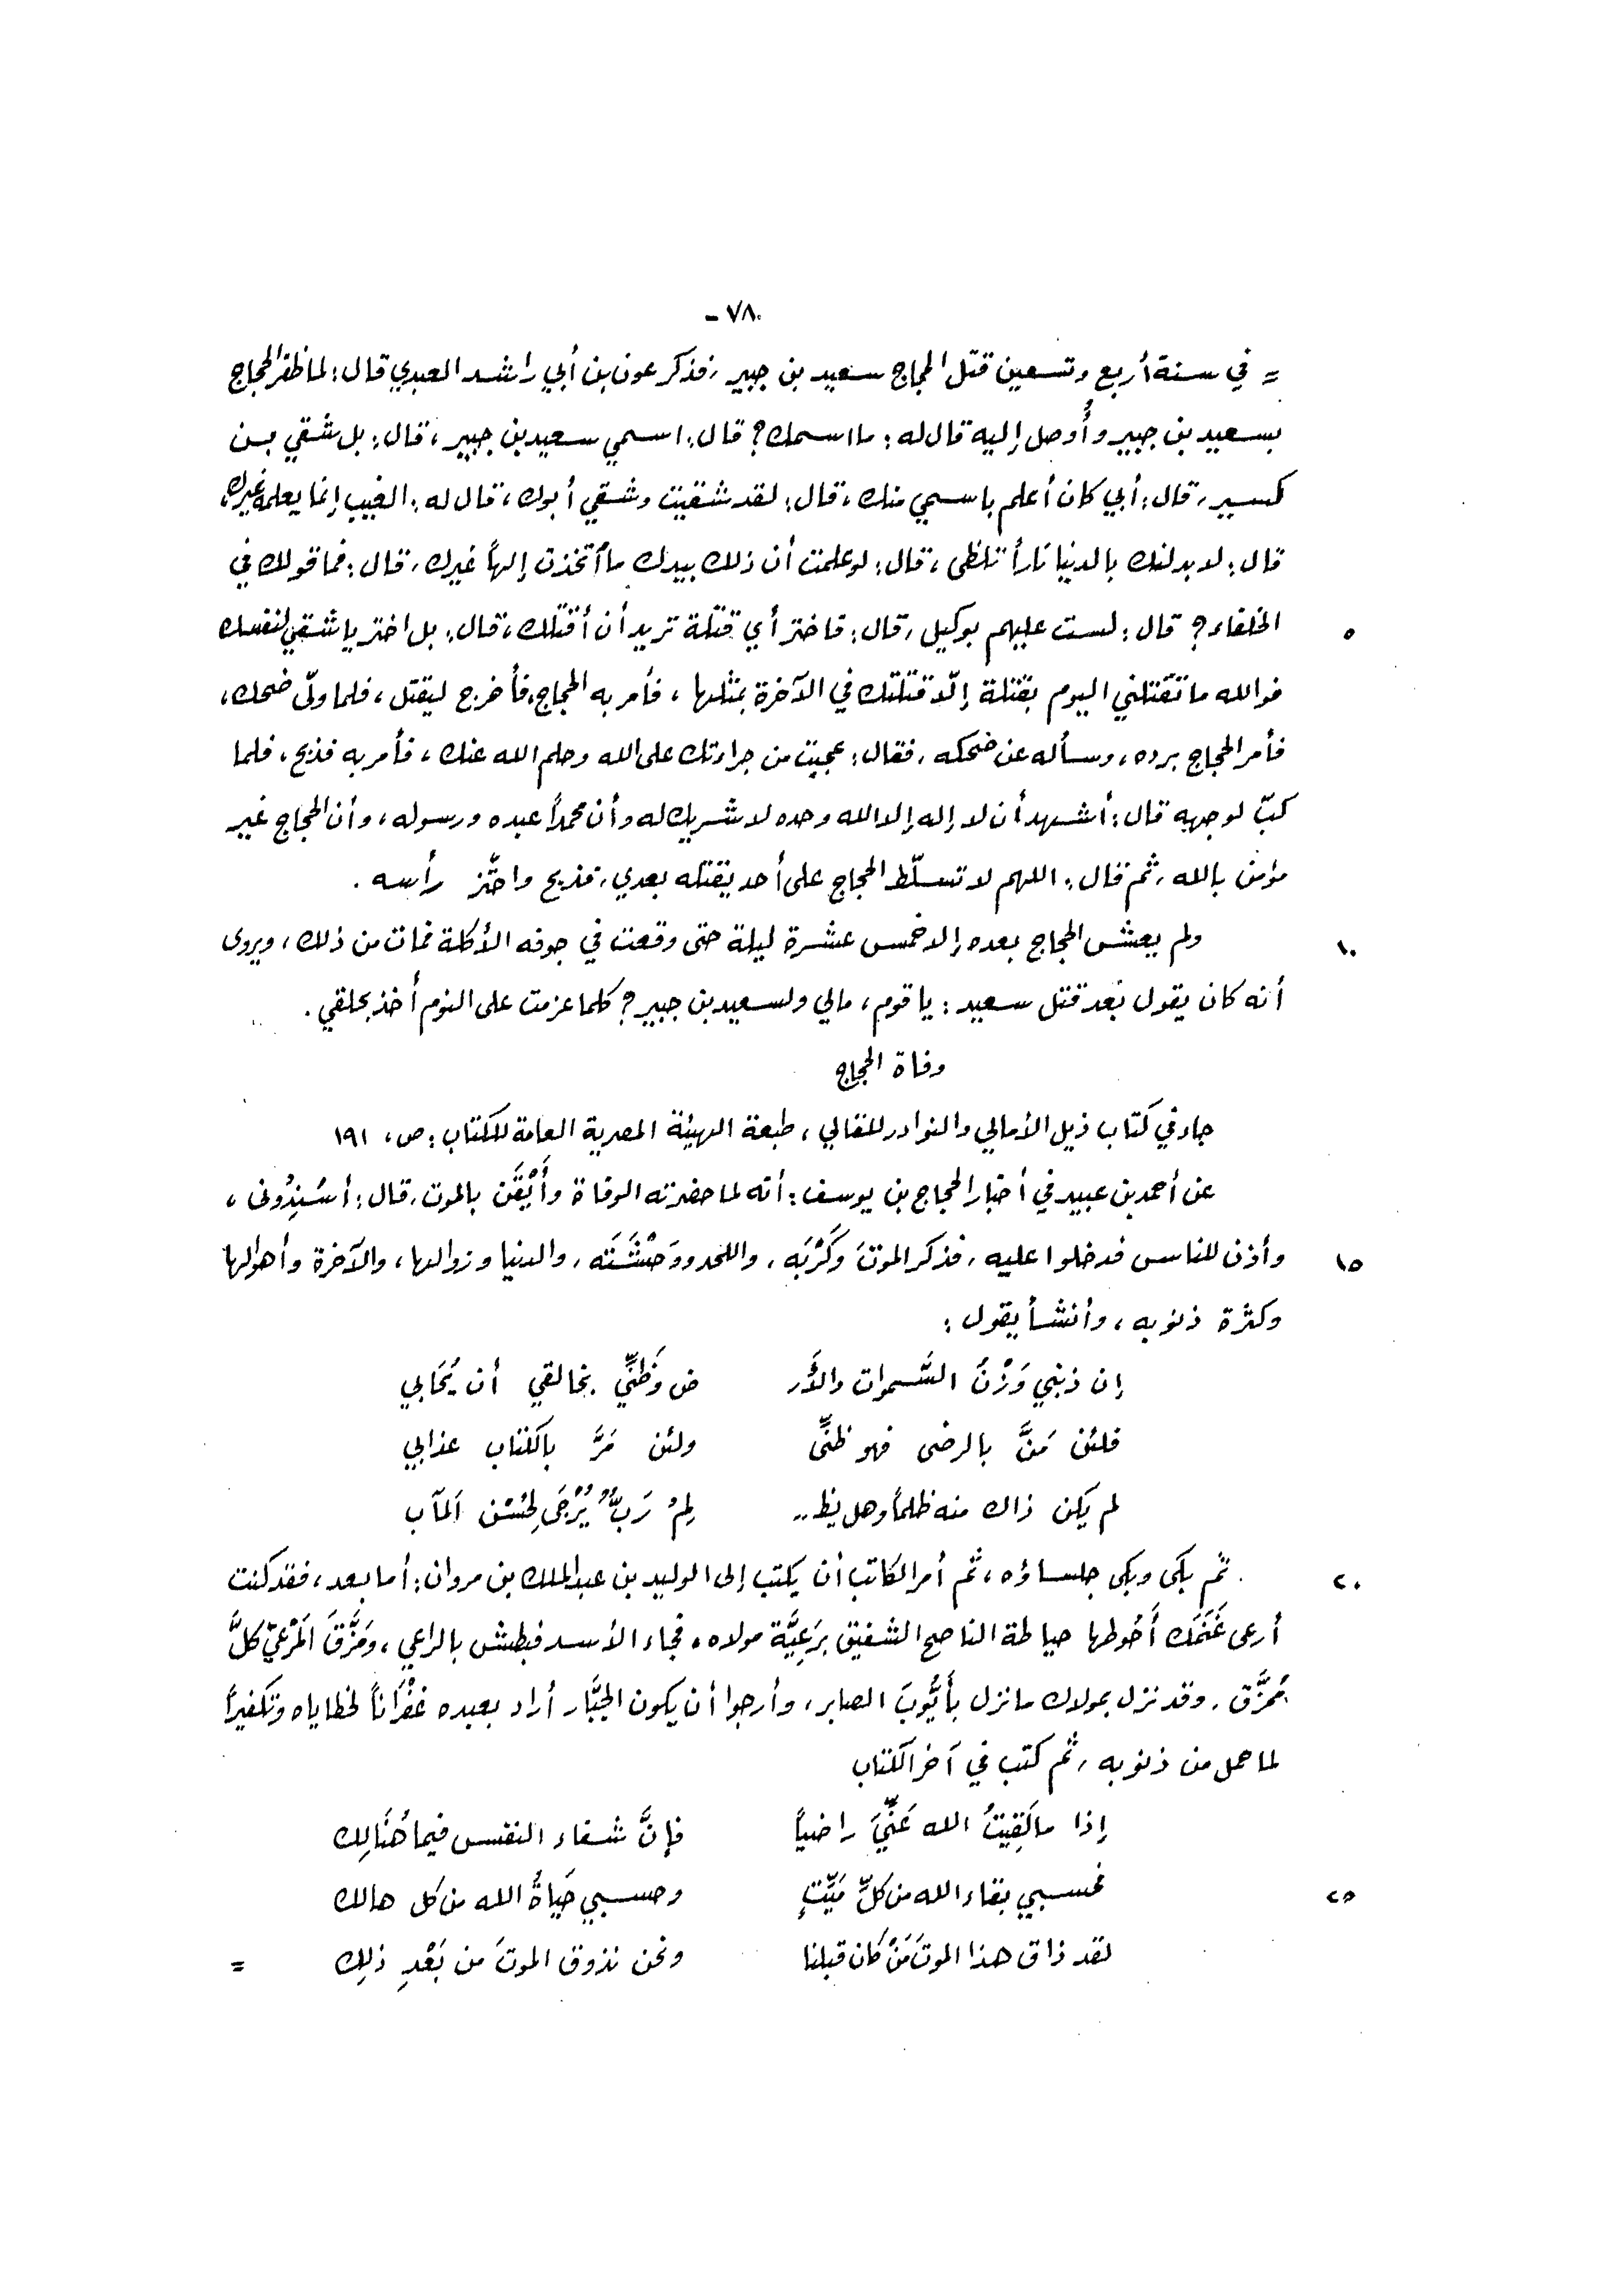 - ٧٨ -
= في سنة أربع وتسعين قتل الحجاج سعيد بن جبير، فذكر عون بن أبي راشد العبدي قال: لما ظفر الحجاج
بسعيد بن جبير وأُوصل إليه قال له: ما اسمك؟ قال: اسمي سعيد بن جبير، قال: بل شقي بن
كسير، قال: أبي كان أعلم باسمي منك، قال: لقد شقيت وشقي أبوك، قال له: الغيب إنما يعلمه غيرك،
قال: لابدلنك بالدنيا ناراً تلظى، قال: لو علمت أن ذلك بيدك ما اتخذت إلهاً غيرك، قال: فما قولك في
الخلفاء؟ قال: لست عليهم بوكيل، قال: فاختر أي قتلة تريد أن أقتلك، قال: بل اختر يا شقي لنفسك ٥
فوالله ما تقتلني اليوم بقتلة إلّا قتلتك في الآخرة بمثلها، فأمر به الحجاج، فأخرج ليقتل، فلما ولّى ضحك،
فأمر الحجاج برده، وسأله عن ضحكه، فقال: عجبت من جراءتك على الله وحلم الله عنك، فأمر به فذبح، فلما
كبّ لوجهه قال: أشهد أن لا إله إلا الله وحده لا شريك له وأن محمداً عبده ورسوله، وأن الحجاج غير
مؤمن بالله، ثم قال: اللهم لا تسلّط الحجاج على أحد يقتله بعدي، فذبح واحتّز رأسه.
ولم يعش الحجاج بعده إلا خمس عشرة ليلة حتى وقعت في جوفه الأكلة فمات من ذلك، ويروى ١٠
أنه كان يقول بعد قتل سعيد: يا قوم، مالي ولسعيد بن جبير؟ كلما عزمت على النوم أخذ بحلقي.
وفاة الحجاج
جاء في كتاب ذيل الأمالي والنوادر للقالي، طبعة الهيئة المصرية العامة للكتاب: ص، ١٩١
عن أحمد بن عبيد في أخبار الحجاج بن يوسف: أنه لما حضرته الوفاة وأَيْقَن بالموت، قال: أسْنِدُوني،
وأذن للناس فدخلوا عليه، فذكر الموتَ وكَرْبَه، واللحد ووَحْشَتَه، والدنيا وزوالها، والآخرة وأهوالها ١٥
وكثرة ذنوبه، وأنشأ يقول:
إن ذنبي وَزْنُ السَّموات والأَر ض وَظَنِّي بخالقي أن يُحَابي
فلئن مَنَّ بالرضى فهو ظنِّي ولئن مَرَّ بالكتاب عذابي
لم يكن ذاك منه ظلماً وهل يظـ.. لِمُ رَبٌّ يُرْجَى لِحُسْن اَلمآب
ثم بكَى وبكى جلساؤه، ثم أمر الكاتب أن يكتب إلى الوليد بن عبد الملك بن مروان: أما بعد، فقد كنت ٢٠
أرعى غَنَمَك أَحُوطها حياطة الناصح الشفيق بِرَعِيَّة مولاه، فجاء الأسد فبطش بالراعي، ومَزَّقَ اَلمَرْعِيّ كلَّ
مُمَزَّق، وقد نزل بمولاك ما نزل بأَيُّوبَ الصابر، وأرجوا أن يكون الجبَّار أراد بعبده غفْرَاناً لخطاياه وتكفيراً
لما حمل من ذنوبه، ثم كتب في آخر الكتاب
إذا ما لَقِيتُ الله عَنِّيَ راضياً فإنَّ شفاء النفس فيما هُنَالِك
فحسبي بقاء الله من كلِّ مَيِّتٍ وحسبي حَياةُ الله من كل هالك ٢٥
لقد ذاق هذا الموتَ مَنْ كان قبلنا ونحن نذوق الموتَ من بَعْدِ ذلِك =